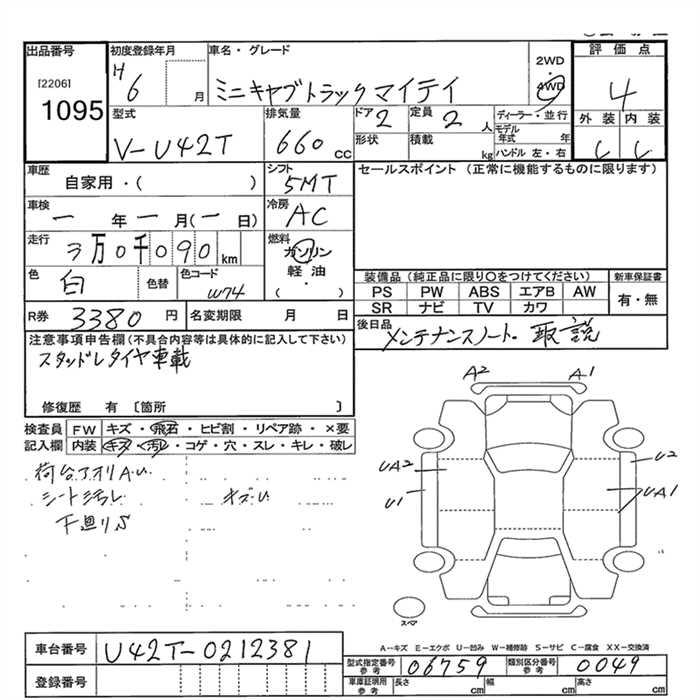 出品番号
[2206]
1095
初度登録年月
H 6 月
車名・グレード
ミニキャブトラックマイティ
2WD
・
4WD
評価点
4
外装 内装
C C
型式
V-U42T
排気量
660 cc
ドア
2
定員
2 人
形状
積載
kg
ディーラー・並行
モデル年式 年
ハンドル 左・右
車歴
自家用・( )
シフト
5MT
車検
ー 年 ー 月(ー 日)
冷房
AC
走行
3万0千090km
燃料
ガソリン
軽油
( ・ )
色
白
色替
色コード
W74
R券 3380 円
名変期限 月 日
セールスポイント (正常に機能するものに限ります)
装備品 (純正品に限り〇をつけてください)
PS PW ABS エアB AW
SR ナビ TV カワ
新車保証書
有・無
後日品
メンテナンスノート・取説
注意事項申告欄(不具合内容等は具体的に記入して下さい)
スタッドレスタイヤ車載
修復歴 有 〔箇所 〕
検査員記入欄
FW キズ・飛石・ヒビ割・リペア跡・×要
内装 キズ・汚レ・コゲ・穴・スレ・キレ・破レ
荷台アオリA.U
シート汚レ キズU
下廻りS
A2 A1
UA2
U1
U2
UA1
スペア
A-キズ E-エクボ U-凹み W-補修跡 S-サビ C-腐食 XX-交換済
車台番号
U42T-0212381
登録番号
型式指定番号 参考
06759
類別区分番号 参考
0049
車庫証明用 参考
長さ cm
幅 cm
高さ cm